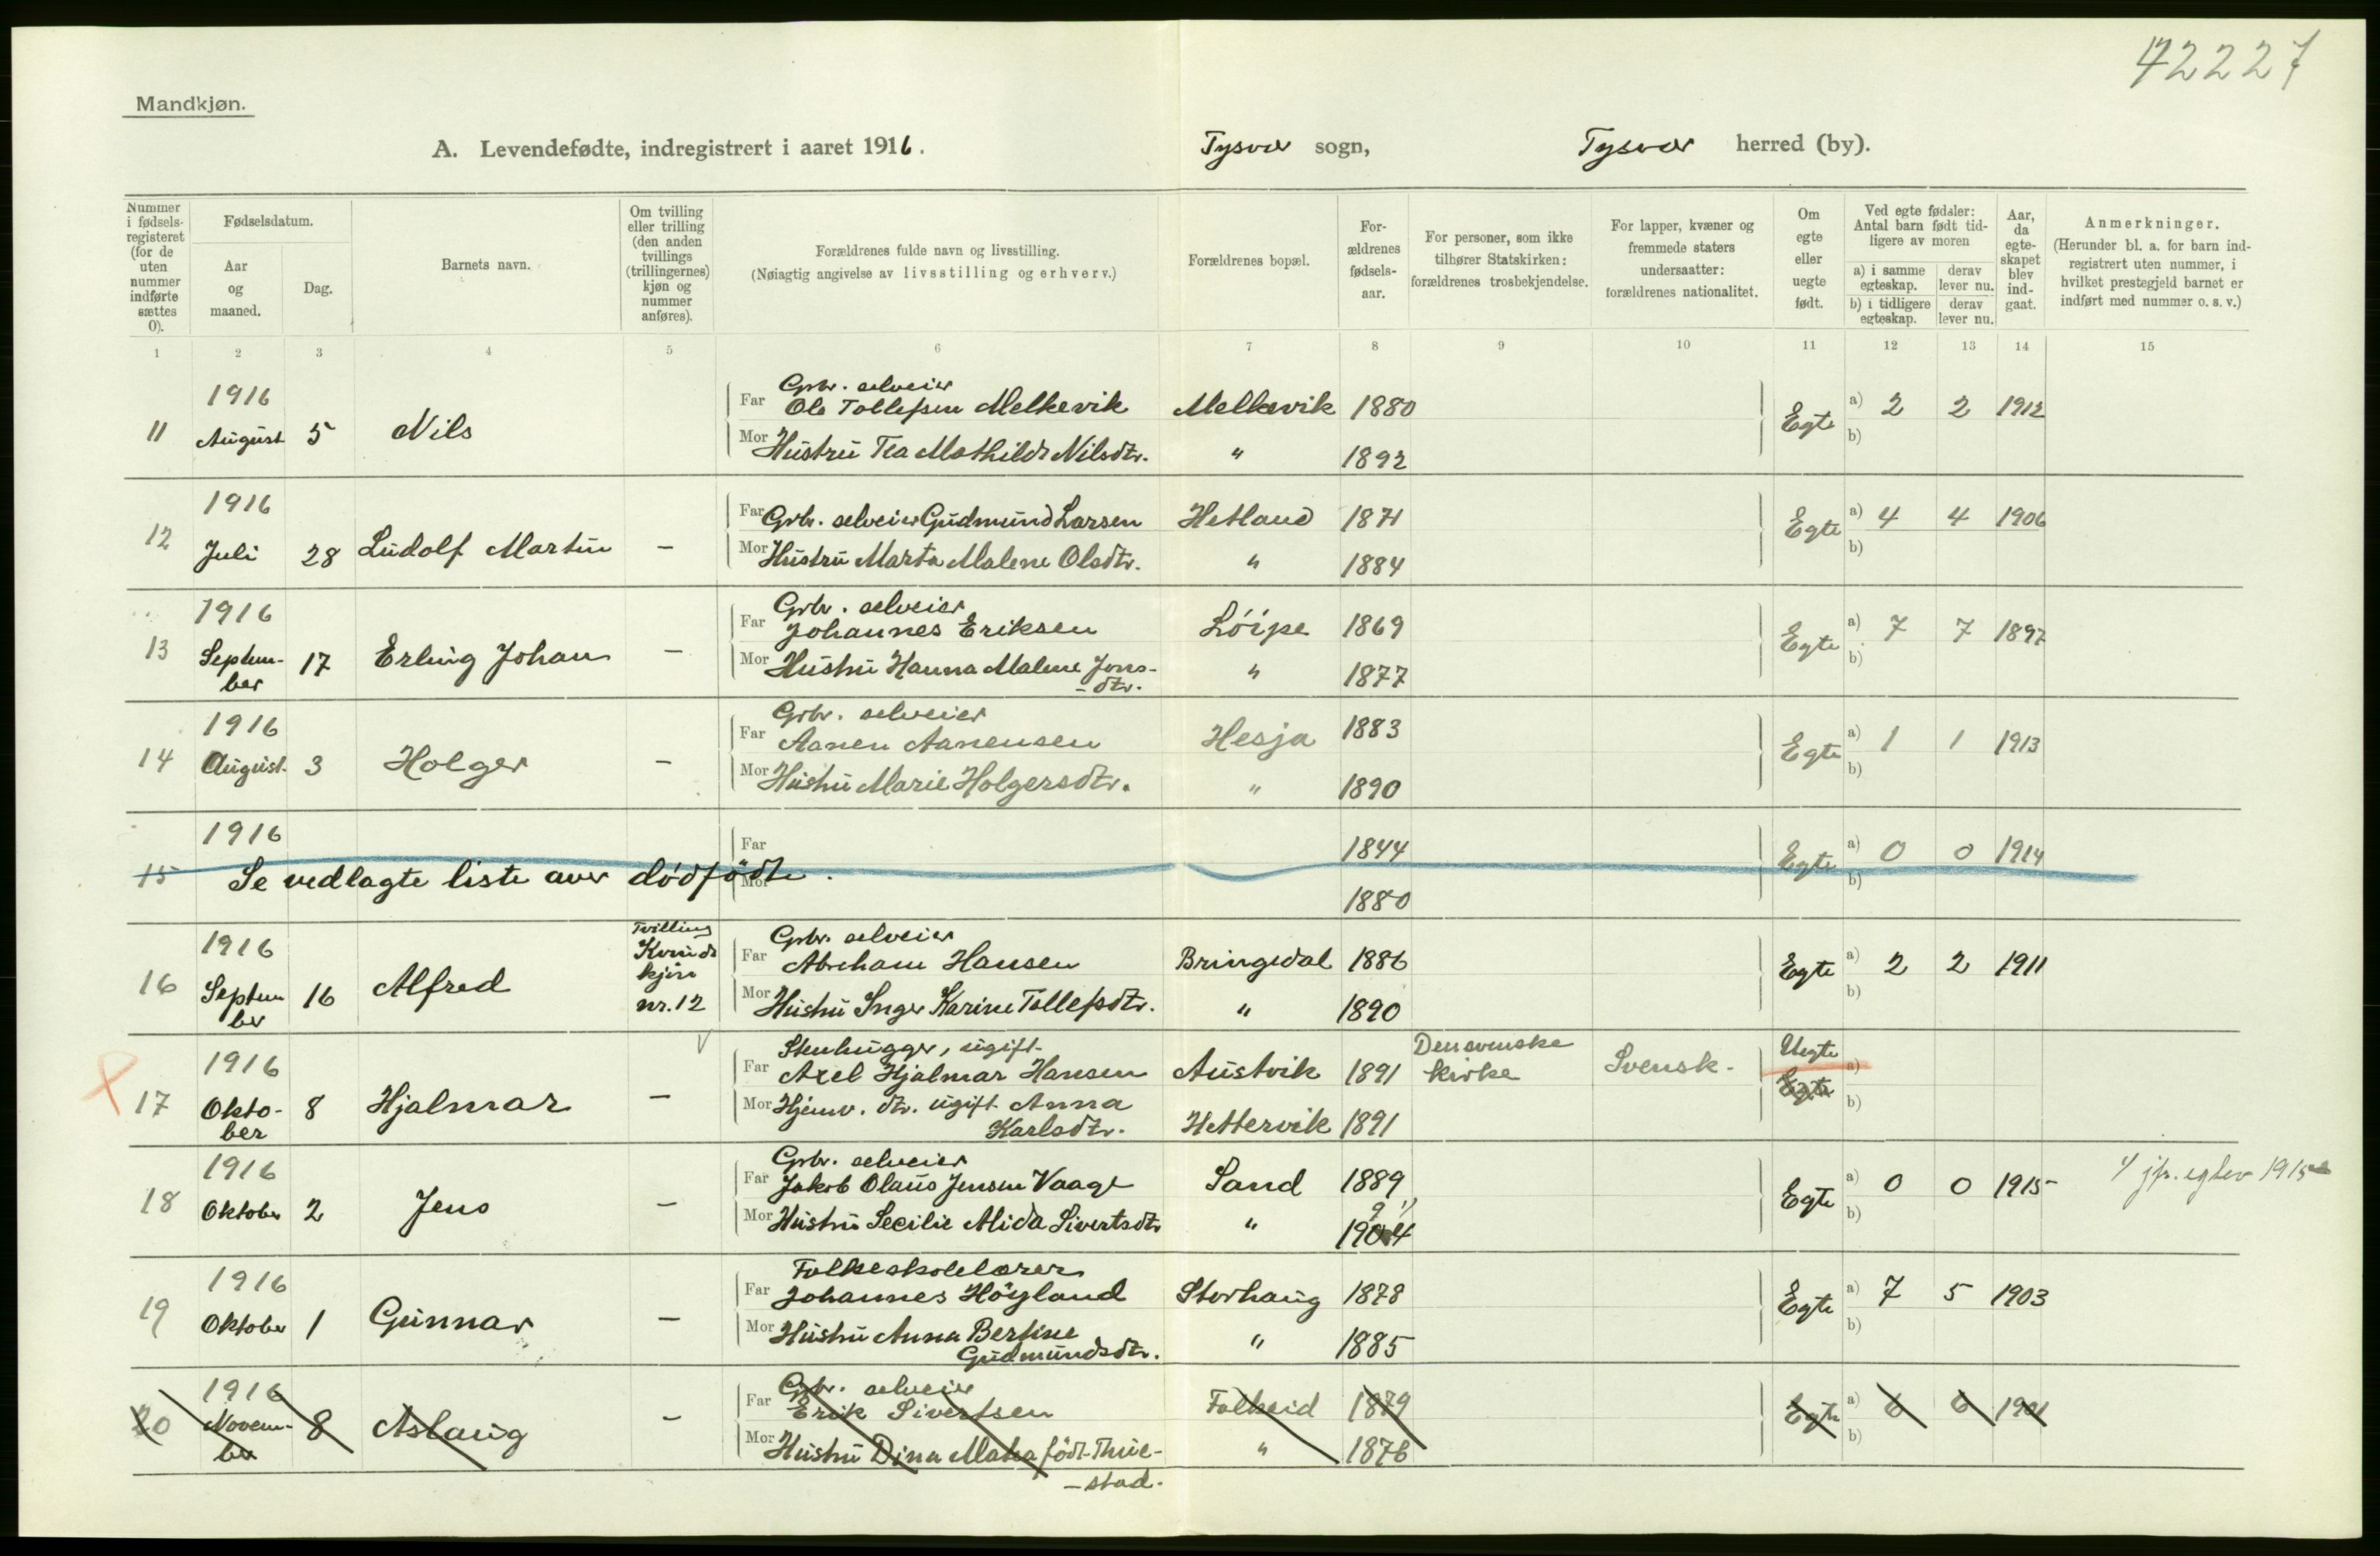 42227
Mandkjøn.
A. Levendefødte, indregistrert i aaret 1916. Tysvær sogn, Tysvær herred (by).
Nummer i fødsels-registeret (for de uten nummer indførte sættes 0).
Fødselsdatum.
Aar og maaned.
Dag.
Barnets navn.
Om tvilling eller trilling (den anden tvillings (trillingernes) kjøn og nummer anføres).
Forældrenes fulde navn og livsstilling.
(Nøiagtig angivelse av livsstilling og erhverv.)
Forældrenes bopæl.
For-ældrenes fødsels-aar.
For personer, som ikke tilhører Statskirken: forældrenes trosbekjendelse.
For lapper, kvæner og fremmede staters undersaatter: forældrenes nationalitet.
Om egte eller uegte født.
Ved egte fødsler: Antal barn født tid-ligere av moren
a) i samme egteskap. derav lever nu.
b) i tidligere egteskap. derav lever nu.
Aar, da egte-skapet blev ind-gaat.
Anmerkninger.
(Herunder bl. a. for barn ind-registrert uten nummer, i hvilket prestegjeld barnet er indført med nummer o. s. v.)
1 2 3 4 5 6 7 8 9 10 11 12 13 14 15
1916 Grbr. selveier
Far Ole Tollefsen Melkevik Melkevik 1880 a) 2 2 1912
11 August 5 Nils Egte b)
Mor Hustru Tea Mathilde Nilsdtr. " 1892
1916
Far Grbr. selveier Gudmund Larsen Hetland 1871 a) 4 4 1906
12 Juli 28 Ludolf Martin - Egte b)
Mor Hustru Marta Malene Olsdtr. " 1884
1916 Grbr. selveier
Far Johannes Eriksen Löipe 1869 a) 7 7 1897
13 Septem- 17 Erling Johan - Egte b)
ber Mor Hustru Hanna Malene Jons- " 1877
-dtr.
1916 Grbr. selveier
Far Aanen Aanensen Hesja 1883 a) 1 1 1913
14 August 3 Holger - Egte b)
Mor Hustru Marie Holgersdtr. " 1890
1916 Far 1844 a) 0 0 1914
15 Se vedlagte liste over dödfödte. Egte b)
Mor 1880
1916 Tvilling Grbr. selveier
Kvinde Far Abraham Hansen Bringedal 1886 a) 2 2 1911
16 Septem 16 Alfred kjön Egte b)
ber nr. 12 Mor Hustru Inger Karine Tollefsdtr. " 1890
1916 Stenhugger, ugift Den svenske Uegte
Far Axel Hjalmar Hansen Austvik 1891 kirke Svensk. a)
17 Okto- 8 Hjalmar - Egte b)
ber Mor Hjemv. dtr. ugift Anna Hettervik 1891
Karlsdtr.
1916 Grbr. selveier
Far Jakob Olaus Jensen Vaage Sand 1889 a) 0 0 1915 1/ jfr. egtev 1915
18 Oktober 2 Jens - Egte b)
Mor Hustru Secilie Alida Sivertsdtr " 1904 9 1)
1916 Folkeskolelærer
Far Johannes Höyland Storhaug 1878 a) 7 5 1903
19 Oktober 1 Gunnar - Egte b)
Mor Hustru Anna Bertine " 1885
Gudmundsdtr.
1916 Grbr. selveier
Far Erik Sivertsen Falkeid 1879 a) 6 6 1901
20 Novem- 8 Aslaug - Egte b)
ber Mor Hustru Dina Malea födt Thue- " 1876
-stad.